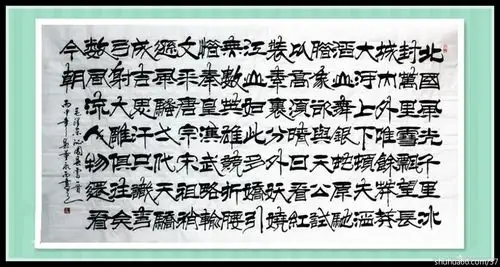 北國風光千里冰
封萬里雪飄望長
城内外惟餘莽莽
大河上下頓失滔
滔山舞銀蛇原馳
腊象欲與天公試
比高須晴日看紅
裝素裹分外妖嬈
江山如此多嬌引
無數英雄競折腰
惜秦皇漢武略輸
文采唐宗宋祖稍
遜風騷一代天驕
成吉思汗只識彎
弓射大雕俱往矣
數風流人物還看
今朝
毛澤東沁園春雪一首
丙申年